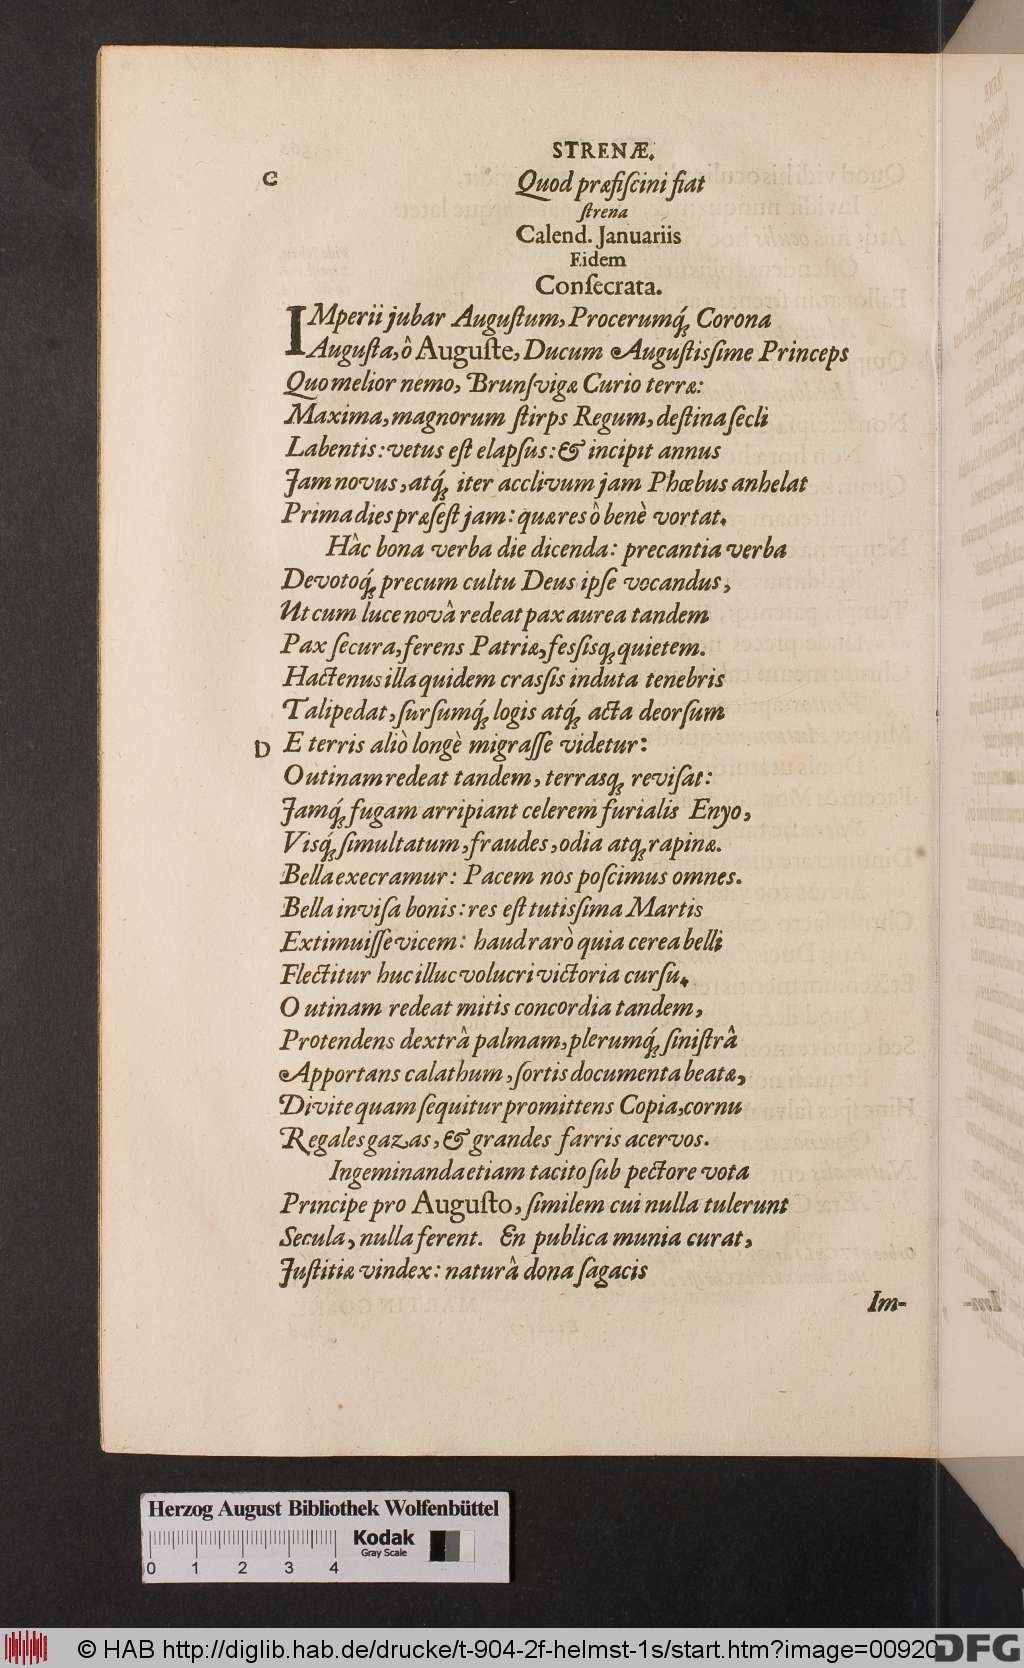 STRENÆ.
C
Quod præfiſcini fiat
ſtrena
Calend. Januariis
Eidem
Conſecrata.
IMperii jubar Auguſtum, Procerumq́; Corona
Auguſta, ô Auguſte, Ducum Auguſtisſime Princeps
Quo melior nemo, Brunſvigæ Curio terræ:
Maxima, magnorum ſtirps Regum, deſtina ſecli
Labentis: vetus eſt elapſus: & incipit annus
Jam novus, atq́; iter acclivum jam Phœbus anhelat
Prima dies præſeſt jam: quæ res ò benè vortat.
Hâc bona verba die dicenda: precantia verba
Devotoq́; precum cultu Deus ipſe vocandus,
Ut cum luce novâ redeat pax aurea tandem
Pax ſecura, ferens Patriæ, fesſisq; quietem.
Hactenus illa quidem crasſis induta tenebris
Talipedat, ſurſumq́; logis atq́; acta deorſum
D
E terris aliò longè migraſſe videtur:
O utinam redeat tandem, terrasq; reviſat:
Jamq́; fugam arripiant celerem furialis Enyo,
Visq́; ſimultatum, fraudes, odia atq; rapinæ.
Bella execramur: Pacem nos poſcimus omnes.
Bella inviſa bonis: res eſt tutisſima Martis
Extimuiſſe vicem: haud rarò quia cerea belli
Flectitur huc illuc volucri victoria curſu.
O utinam redeat mitis concordia tandem,
Protendens dextrâ palmam, plerumq́; ſiniſtrâ
Apportans calathum, ſortis documenta beatæ,
Divite quam ſequitur promittens Copia, cornu
Regales gazas, & grandes farris acervos.
Ingeminanda etiam tacito ſub pectore vota
Principe pro Auguſto, ſimilem cui nulla tulerunt
Secula, nulla ferent. En publica munia curat,
Juſtitiæ vindex: naturâ dona ſagacis
Im-
Herzog August Bibliothek Wolfenbüttel
Kodak
Gray Scale
0 1 2 3 4
© HAB http://diglib.hab.de/drucke/t-904-2f-helmst-1s/start.htm?image=00920
DFG